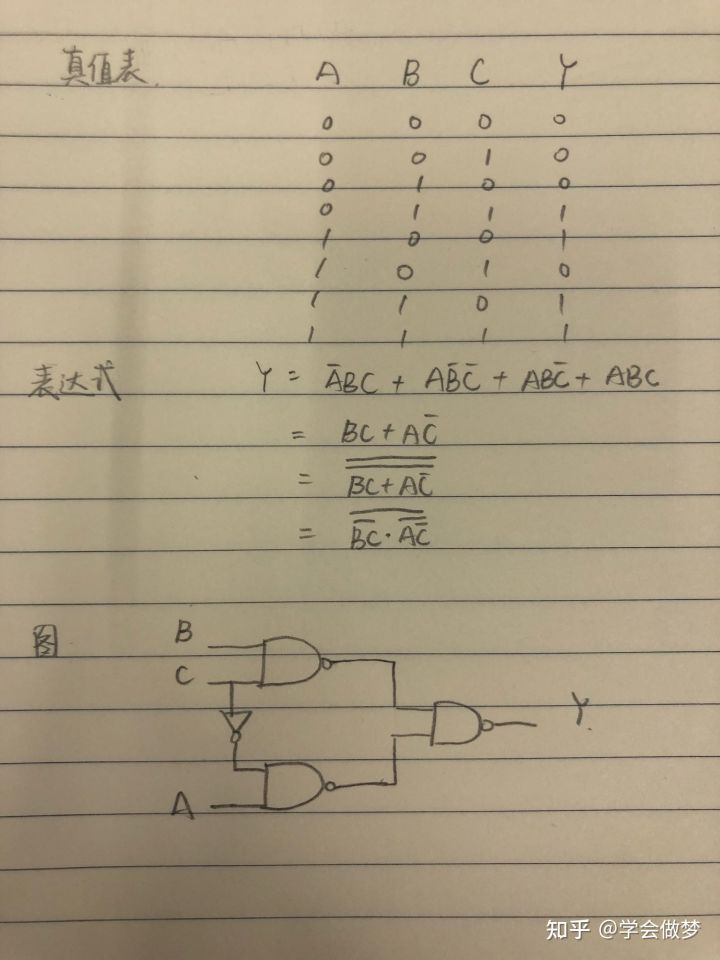 真值表. A B C Y
0 0 0 0
0 0 1 0
0 1 0 0
0 1 1 1
1 0 0 1
1 0 1 0
1 1 0 1
1 1 1 1
表达式 Y = A̅BC + AB̅C̅ + ABC̅ + ABC
= BC + AC̅
= \overline{\overline{BC+A\overline{C}}}
= \overline{\overline{BC}·\overline{A\overline{C}}}
图
B
C
Y.
A
知乎 @学会做梦